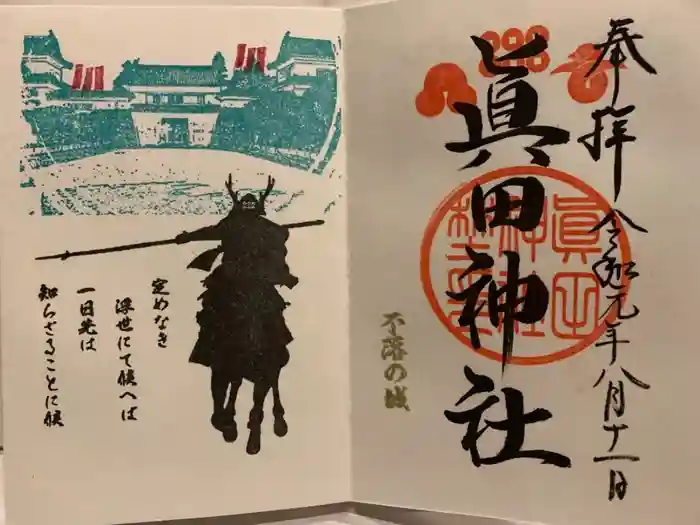 奉拝 令和元年八月十一日
眞田神社
不落の城
定めなき
浮世にて候へば
一日先は
知らざることに候